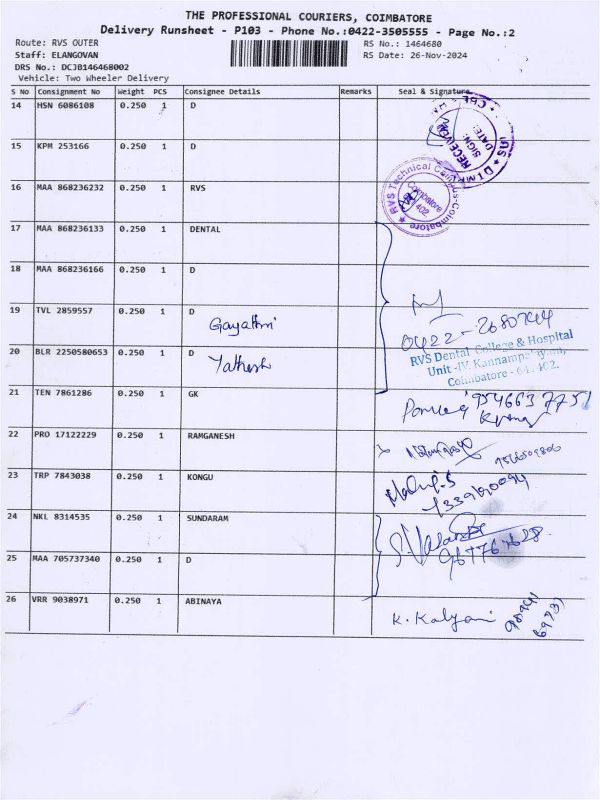 THE PROFESSIONAL COURIERS, COIMBATORE
Delivery Runsheet - P103 - Phone No.:0422-3505555 - Page No.:2
Route: RVS OUTER
RS No.: 1464680
Staff: ELANGOVAN
RS Date: 26-Nov-2024
DRS No.: DCJB146468002
Vehicle: Two Wheeler Delivery
S No Consignment No Weight PCS Consignee Details Remarks Seal & Signature
14 HSN 6086108 0.250 1 D
RECEIVED
DATE:
SIGN:
15 KPM 253166 0.250 1 D
16 MAA 868236232 0.250 1 RVS
RVS Technical Coimbatore
Coimbatore
402
17 MAA 868236133 0.250 1 DENTAL
18 MAA 868236166 0.250 1 D
19 TVL 2859557 0.250 1 D
Gayathri
0422-2680744
20 BLR 2250580653 0.250 1 D
RVS Dental College & Hospital
Unit -IV, Kannampalayam,
Coimbatore - 641 402.
21 TEN 7861286 0.250 1 GK
22 PRO 17122229 0.250 1 RAMGANESH
23 TRP 7843038 0.250 1 KONGU
24 NKL 8314535 0.250 1 SUNDARAM
25 MAA 705737340 0.250 1 D
26 VRR 9038971 0.250 1 ABINAYA
K. Kalyani